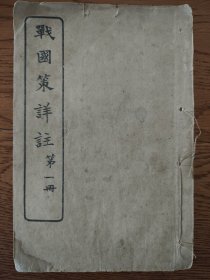 戰國策詳註 第一冊